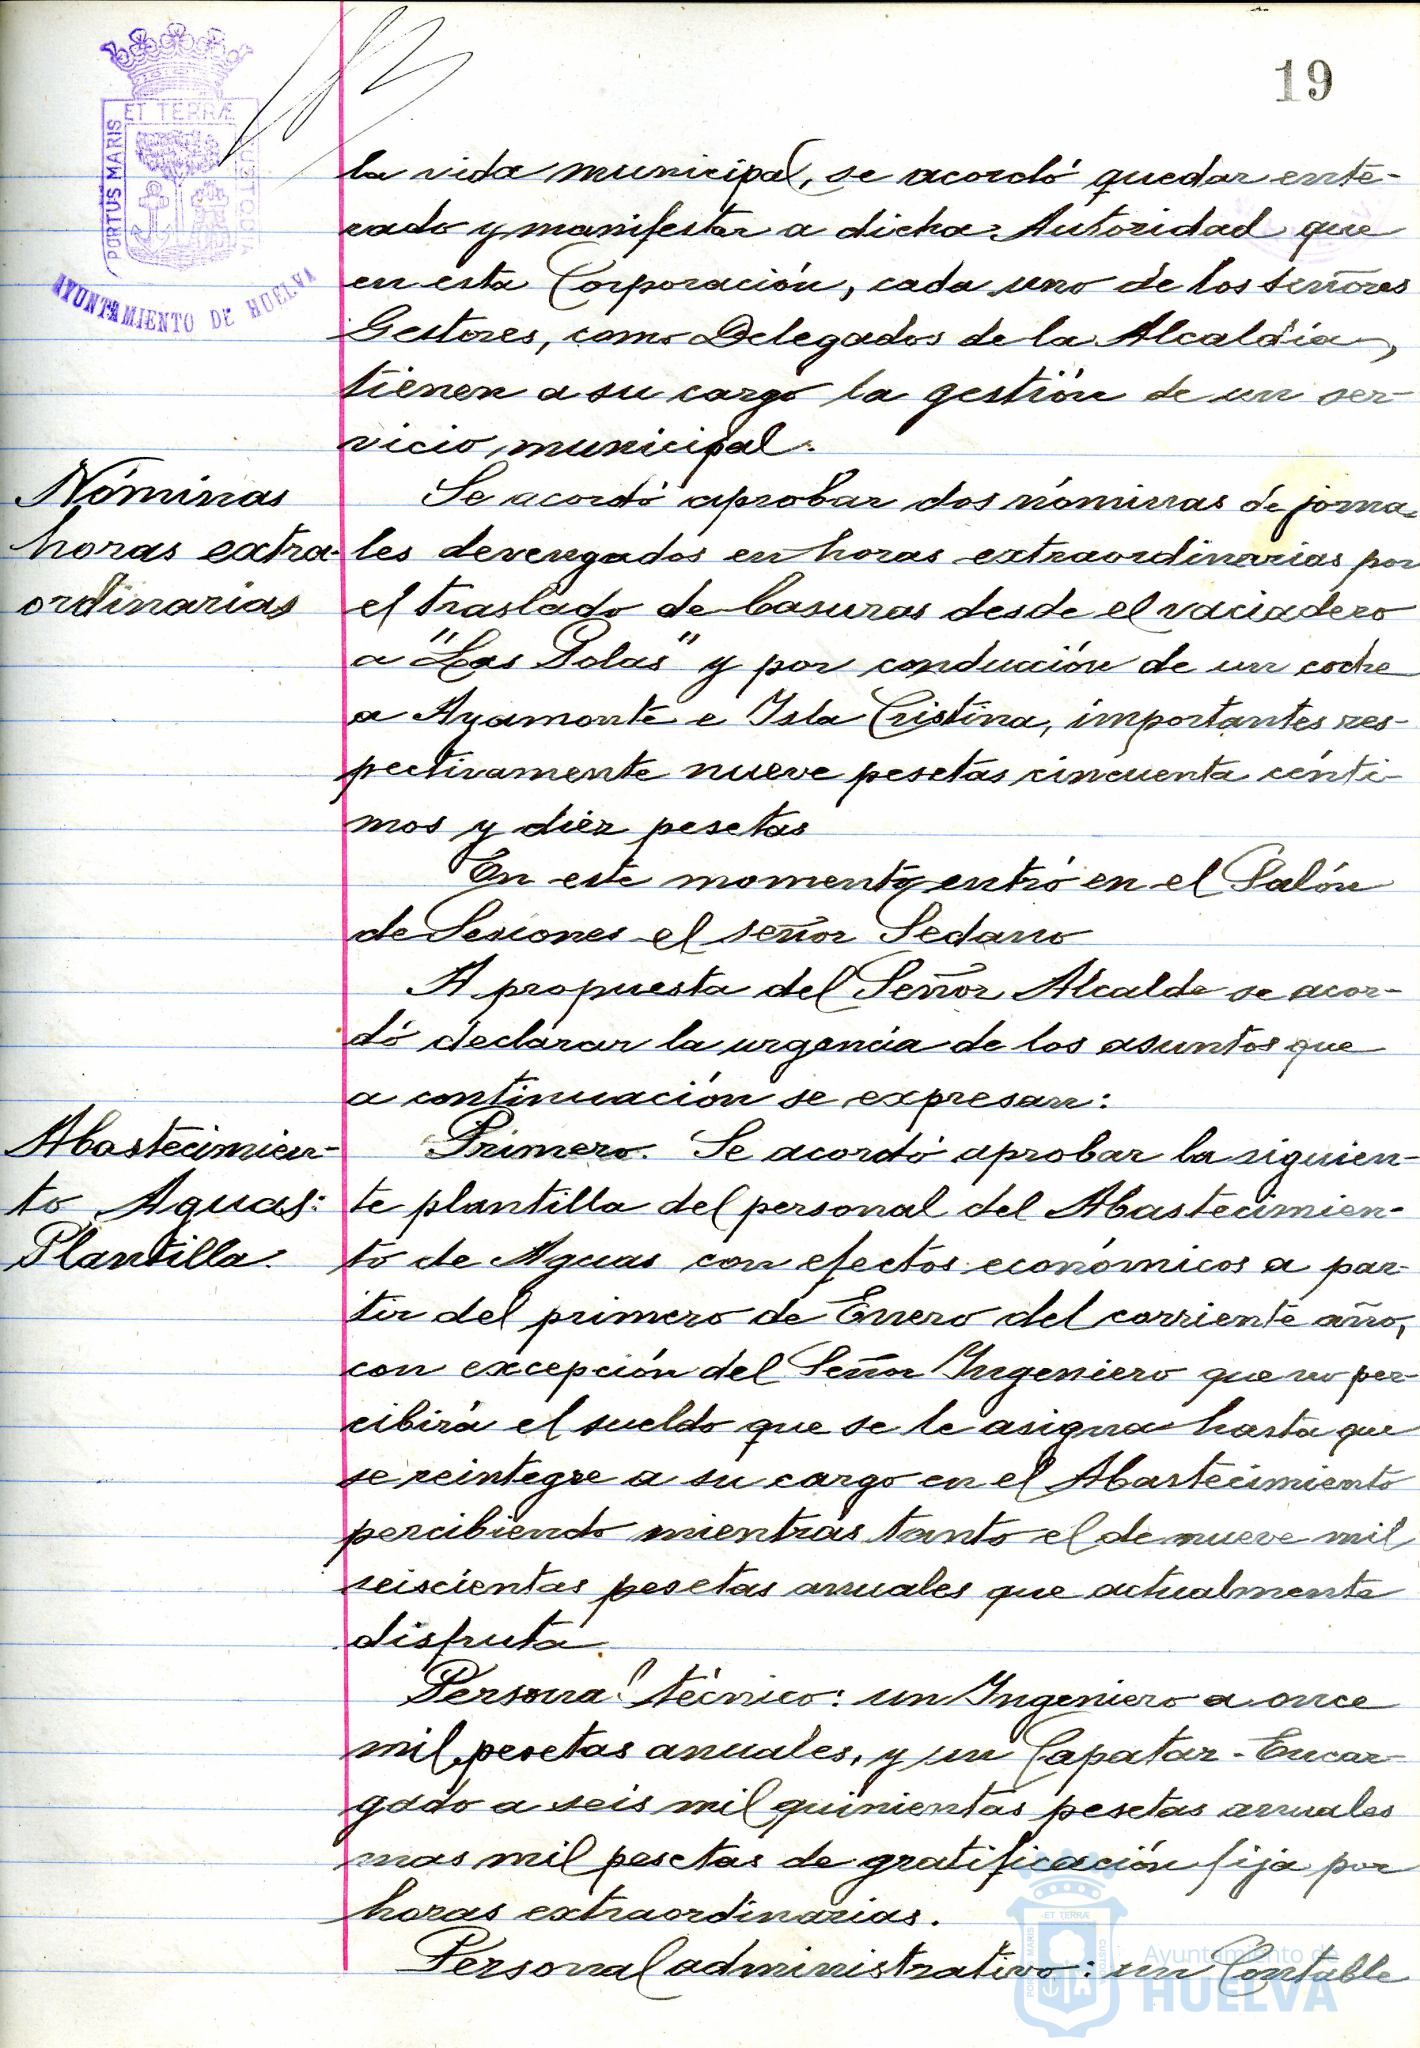 19
PORTUS MARIS
ET TERRÆ
CUSTODIA
AYUNTAMIENTO DE HUELVA
la vida municipal, se acordó quedar ente-
rado y manifestar a dicha Autoridad que
en esta Corporación, cada uno de los señores
Gestores, como Delegados de la Alcaldía,
tienen a su cargo la gestión de un ser-
vicio municipal.
Nóminas
horas extra-
ordinarias
Se acordó aprobar dos nóminas de jorna-
les devengados en horas extraordinarias por
el traslado de basuras desde el vaciadero
a "Las Polas" y por conducción de un coche
a Ayamonte e Isla Cristina, importantes res-
pectivamente nueve pesetas cincuenta cénti-
mos y diez pesetas
En este momento entró en el Salón
de Sesiones el señor Sedano
A propuesta del Señor Alcalde se acor-
dó declarar la urgencia de los asuntos que
a continuación se expresan:
Abastecimien-
to Aguas:
Plantilla.
Primero. Se acordó aprobar la siguien-
te plantilla del personal del Abastecimien-
to de Aguas con efectos económicos a par-
tir del primero de Enero del corriente año,
con excepción del Señor Ingeniero que no per-
cibirá el sueldo que se le asigna hasta que
se reintegre a su cargo en el Abastecimiento
percibiendo mientras tanto el de nueve mil
seiscientas pesetas anuales que actualmente
disfruta
Personal técnico: un Ingeniero a once
mil pesetas anuales, y un Capataz-Encar-
gado a seis mil quinientas pesetas anuales
mas mil pesetas de gratificación fija por
horas extraordinarias.
Personal administrativo: un Contable
PORTUS MARIS
ET TERRÆ
CUSTODIA
Ayuntamiento de
HUELVA